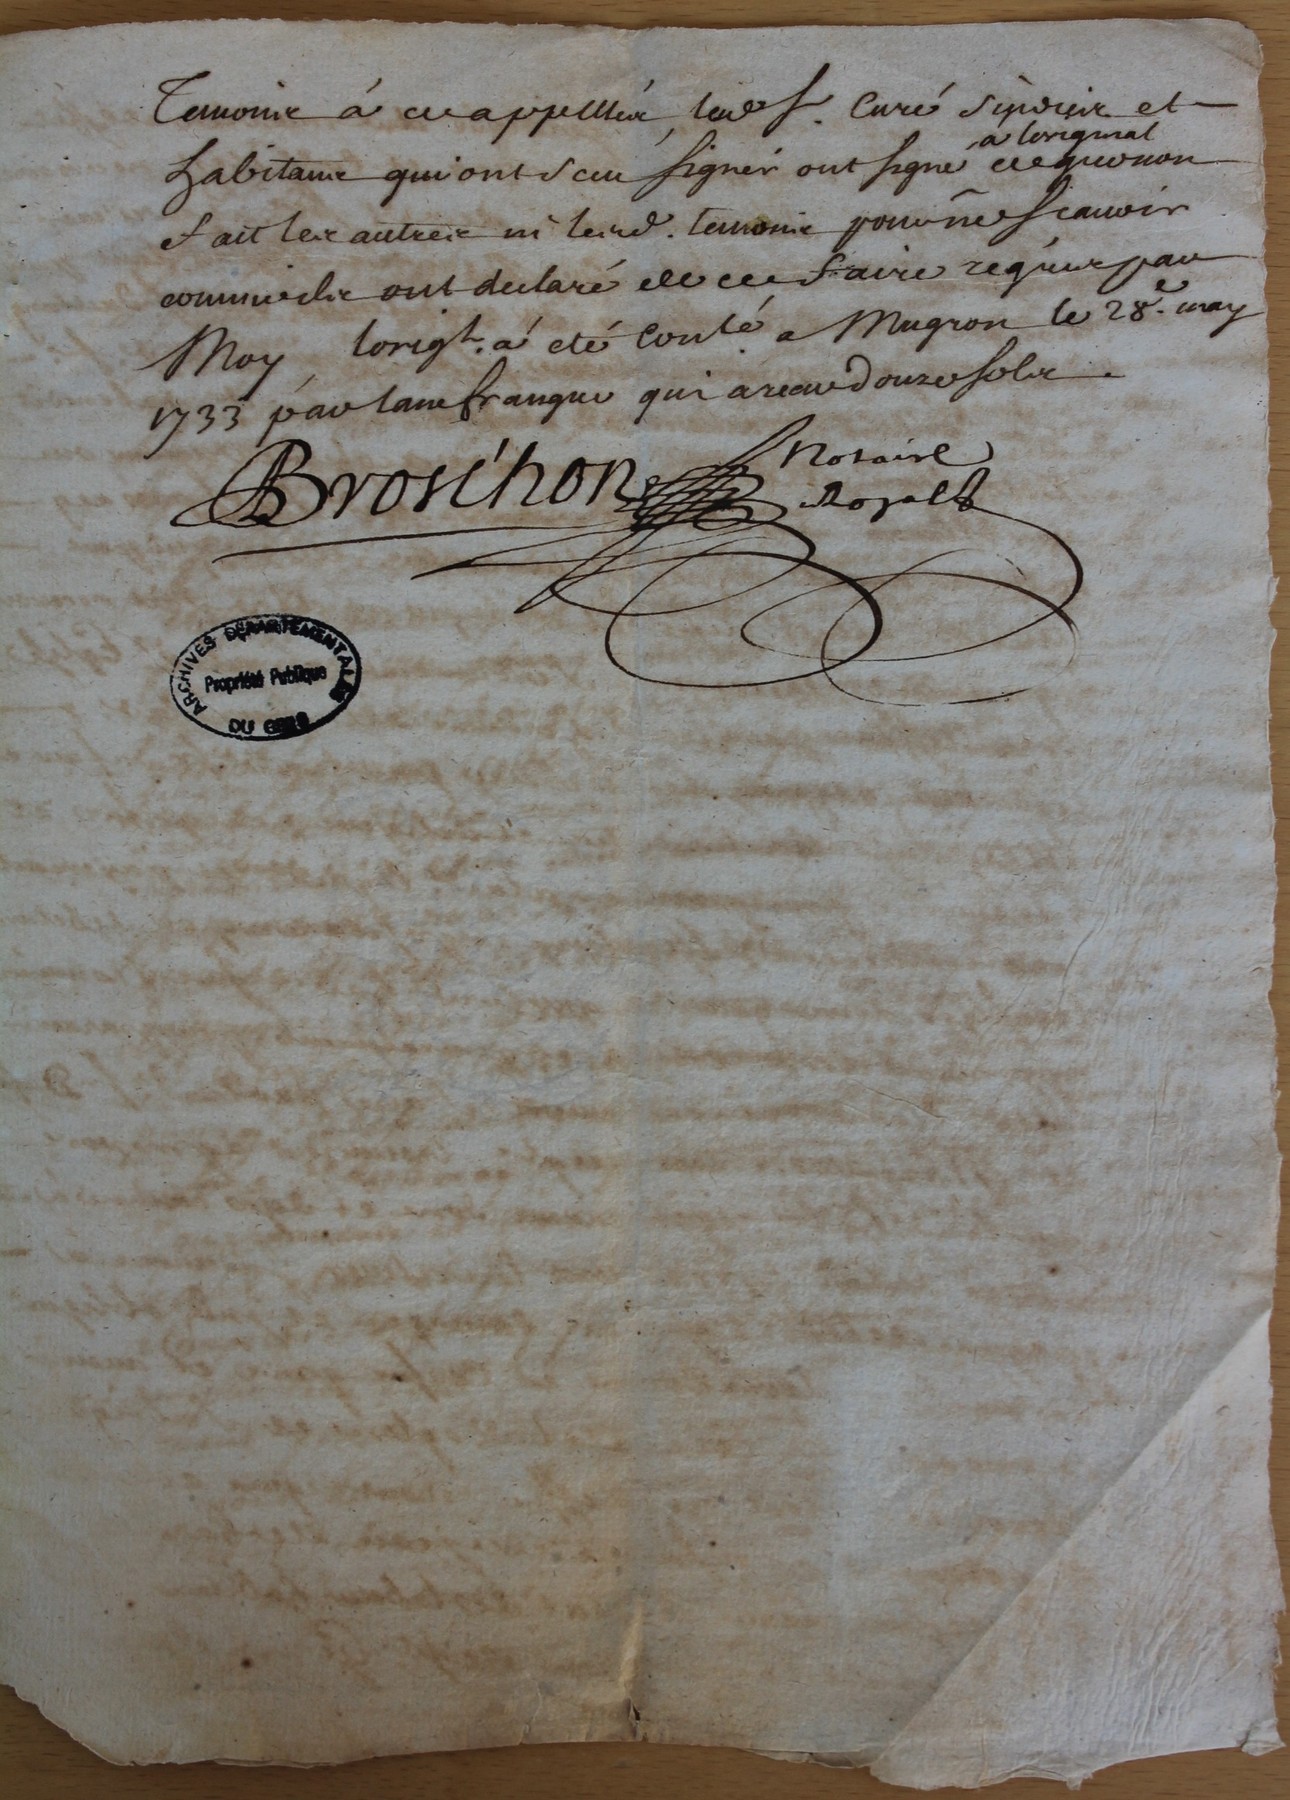 Temoins á ce appellés, lesd. Sr. Curé sindics et
à loriginal
habitans qui ont sceu signer ont signé ce que non
fait les autres ni lesd. temoins pour ne scauoir
comme ils ont declaré de ce faire requis par
Moy, lorigl. á eté Conlé a Mugron le 28e. may
1733 par lanefranque qui a receu douze sols.
Brosthon Notaire
Royal
ARCHIVES DÉPARTEMENTALES
Propriété Publique
DU GERS